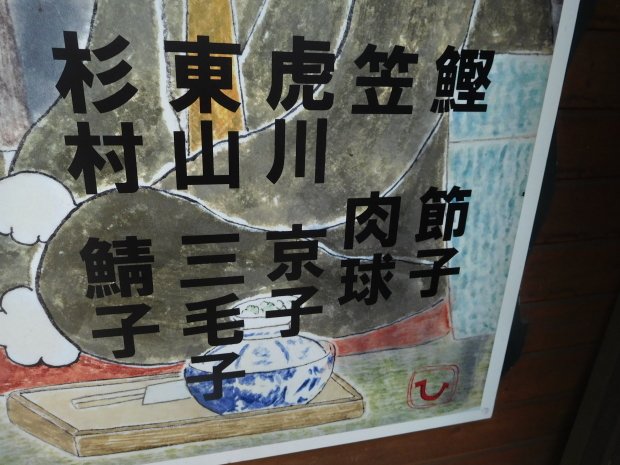 鰹 節子
笠 肉球
虎川 京子
東山 三毛子
杉村 鯖子
ひ